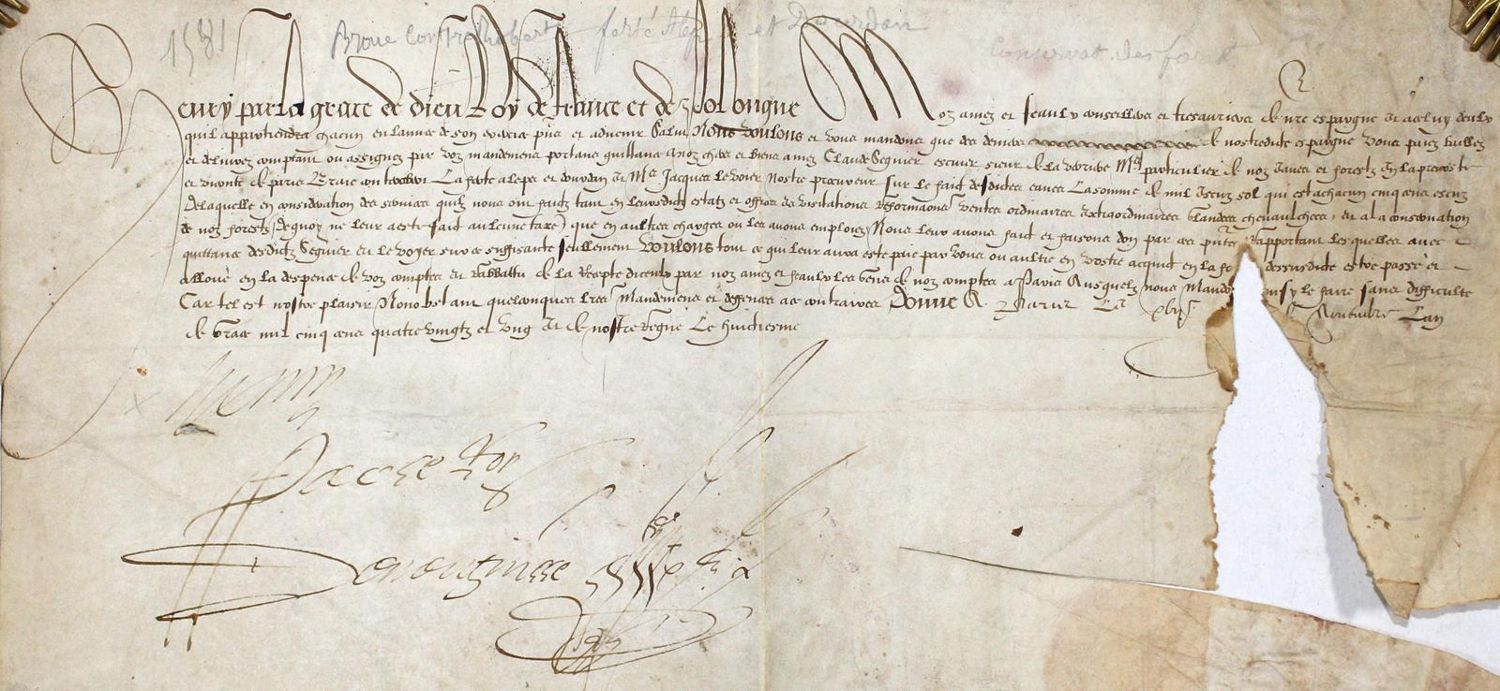 1581 Brove Conte Robert ferté Alep et Dourdan
Conservat des foret
Henry par la grace de dieu Roy de france et de Pollongne A Noz amez et feaulx conseillers et tresauriers de nre espargne et a celuy deulx
quil appartiendra chacun en lannee de son exercice pnte et advenir Salut Nous voulons et vous mandons que des deniers de nostredite espargne vous paiez baillez
et delivrez comptant ou assignez par voz mandemens portans quittance a noz chers et bien amez Claude Seguier escuier sieur de la Verriere Me particulier de noz eaues et forestz en la prevosté
et viconté de paris Braie conte Robert La ferte alepes et dourdan et Me Jacques le Voier Nostre procureur sur le faict desdictes eaues La somme de mil escuz sol qui est a chacun cinq cens escuz
De laquelle en consideration des services quilz nous ont faictz tant en leursdictz estatz et offices es visitations Refformaons ventes ordinaires extraordinaires blandees chevaulchees et a la conservation
de noz forestz (dequoy ne leur a este faict aulcune taxe) que en aultres charges ou les avons emploiez Nous leur avons faict et faisons don par ces pntes Rapportant lesquelles avec
quittance desdictz Seguier et le Voyer sur ce suffisante seullement voulons tout ce qui leur aura esté paié par vous ou aultre en vostre acquict en la fo dessusdicte estre passé et
alloué en la despence de voz comptes et Rabbattu de la Recepte dicculx par noz amez et feaulx les gens de noz comptes a Paris Ausquelz nous Mando ainsy le faire sans difficulté
Car tel est nostre plaisir Nonobstant quelconques lres Mandemens et deffences a ce contraires Donné A Paris Le xbije Novembre Lan
de grace mil cinq cens quatre vingtz et ung Et de nostre Regne Le huictiesme
Henry
Par le Roy